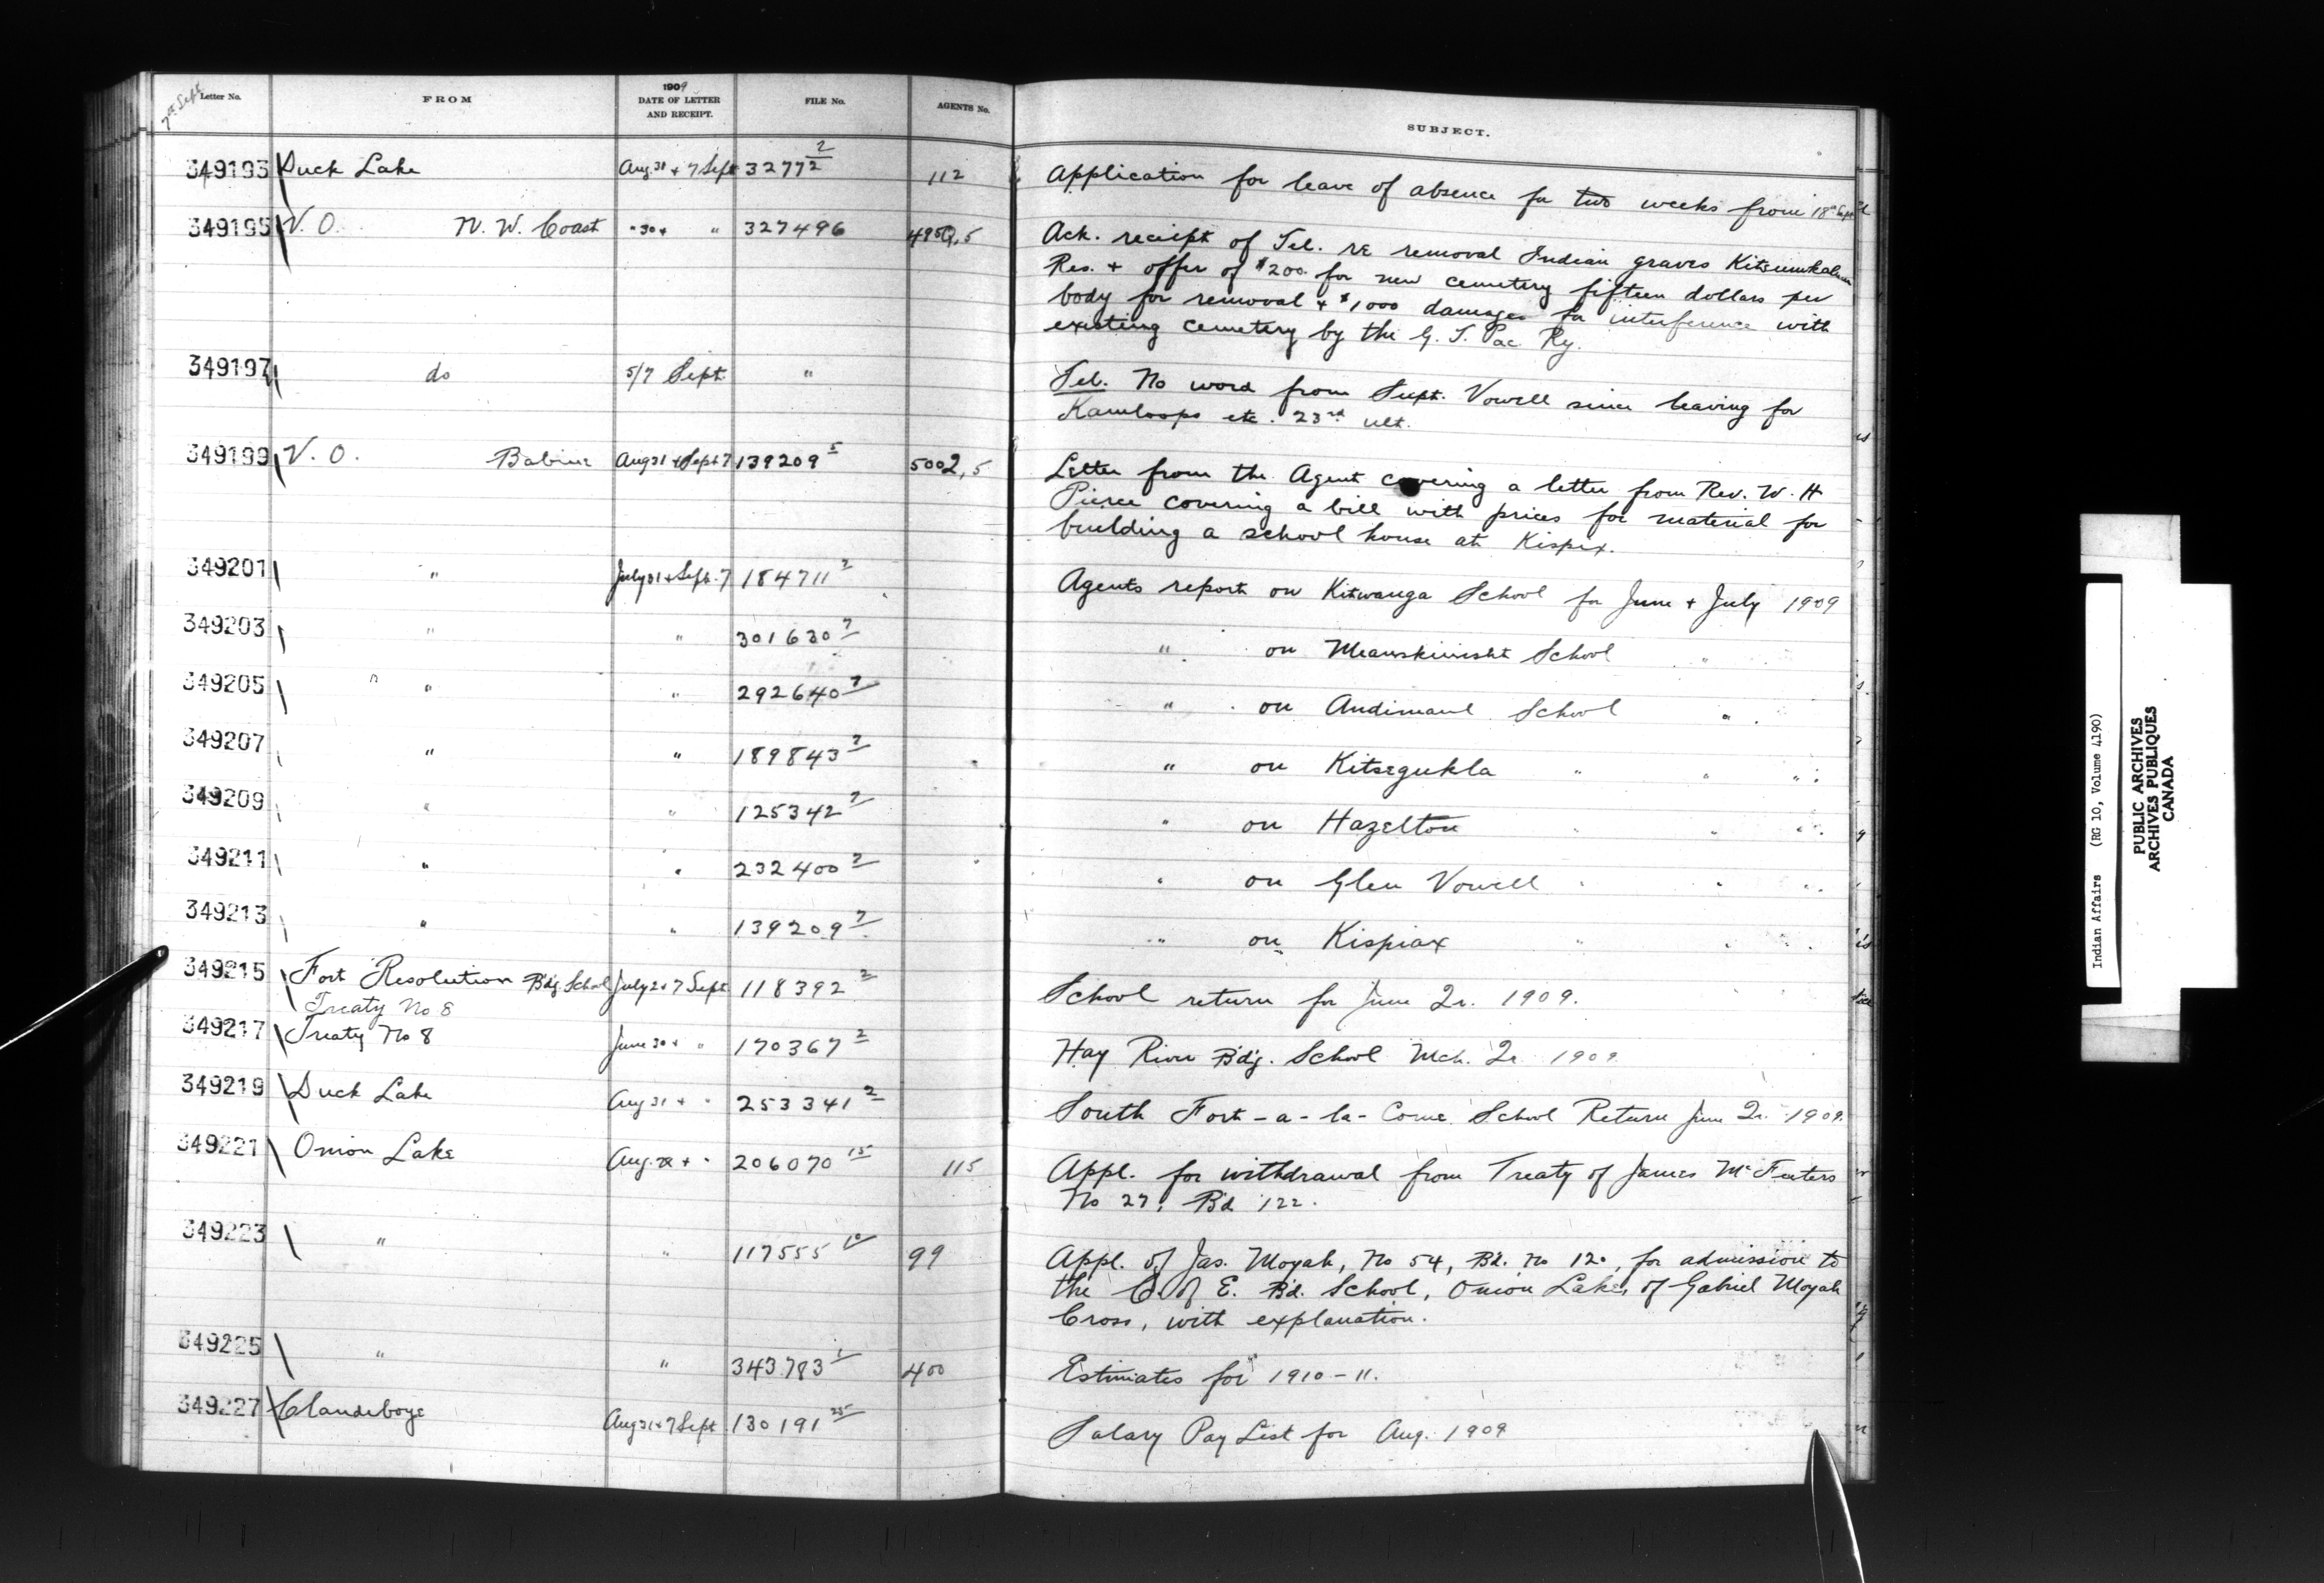 7th Sept
Letter No. FROM 1909 DATE OF LETTER AND RECEIPT. FILE No. AGENTS No. SUBJECT.
349193 Duck Lake Aug. 31 + 7 Sept 32772 2 112 Application for leave of absence for two weeks from 18th Sept
349195 V. O. N. W. Coast " 30 + " 327496 4950,5 Ack. receipt of Tel. re removal Indian graves Kitsumkalum
Res. + offer of $200. for new cemetery fifteen dollars per
body for removal + $1000 damages for interference with
existing cemetery by the G. T. Pac. Ry.
349197 do 5/7 Sept " Tel. No word from Supt. Vowell since leaving for
Kamloops etc. 23rd ult.
349199 V. O. Babine Aug 31 + Sept 7 139209 5 5002,5 Letter from the Agent covering a letter from Rev. W. H
Pierce covering a bill with prices for material for
building a school house at Kispix.
349201 " July 31 + Sept. 7 184711 2 Agents report on Kitwanga School for June + July 1909
349203 " " 301630 7 " on Meanskinisht School "
349205 " " " 292640 7 " on Andimaul School "
349207 " " 189843 7 " on Kitsegukla " " "
349209 " " 125342 7 " on Hazelton " " "
349211 " " 232400 7 " on Glen Vowell " " "
349213 " " 139209 7 " on Kispiax " " "
349215 Fort Resolution Bdg School July 2 + 7 Sept 118392 2 School return for June Qr. 1909.
Treaty No 8
349217 Treaty No 8 June 30 + " 170367 2 Hay River Bdg. School Mch. Qr 1909
349219 Duck Lake Aug 31 + " 253341 2 South Fort-a-la-Corne School Return June Qr. 1909.
349221 Onion Lake Aug. + " 206070 15 115 Appl. for withdrawal from Treaty of James McFeeters
No 27, Bd 122.
349223 " " 117555 10 99 Appl. of Jas. Moyah, No 54, Bd. No 120, for admission to
the C. of E. Bd. School, Onion Lake, of Gabriel Moyah
Cross, with explanation.
349225 " " 343783 1 400 Estimates for 1910-11.
349227 Clandeboye Aug 31 + 7 Sept 130191 25 Salary Pay List for Aug. 1909
Indian Affairs (RG 10, Volume 4190)
PUBLIC ARCHIVES
ARCHIVES PUBLIQUES
CANADA